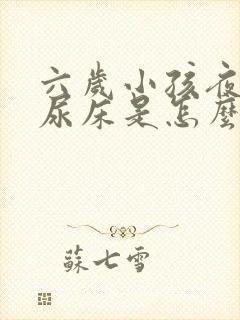 六歲小孩夜
尿床是怎麼
蘇七雪